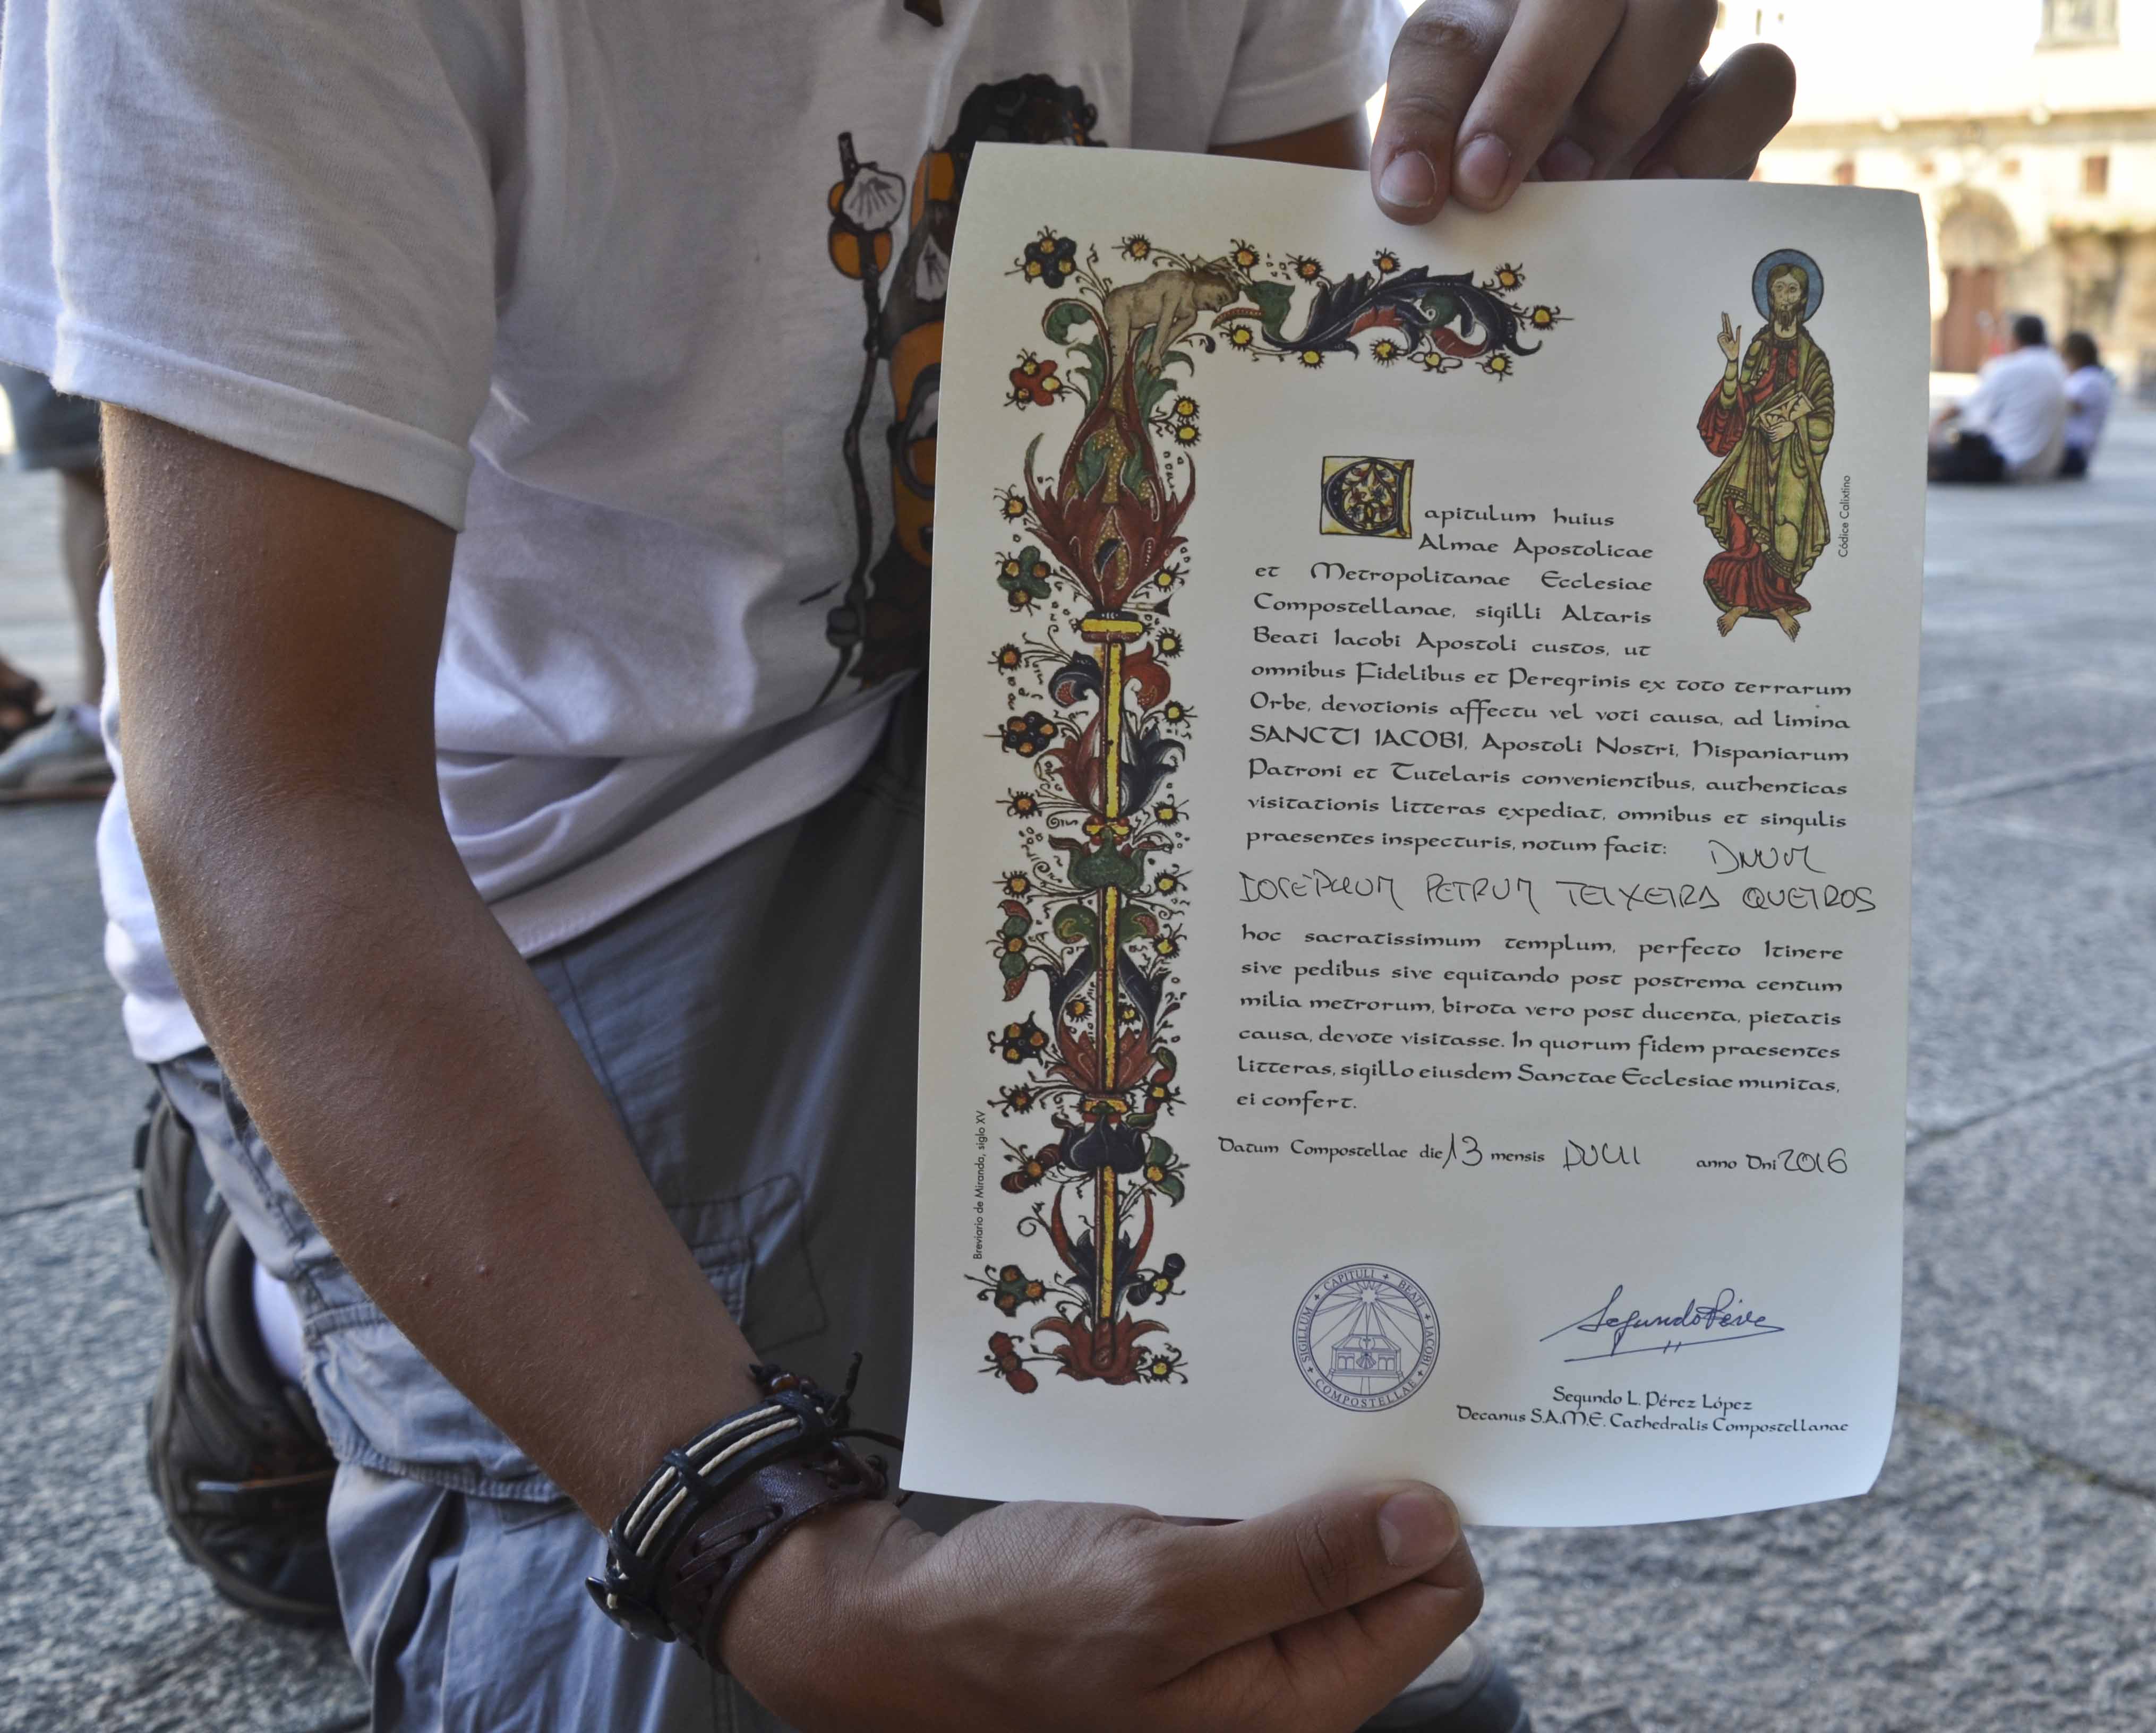 Capitulum huius
Almae Apostolicae
et Metropolitanae Ecclesiae
Compostellanae, sigilli Altaris
Beati Iacobi Apostoli custos, ut
omnibus Fidelibus et Peregrinis ex toto terrarum
Orbe, devotionis affectu vel voti causa, ad limina
SANCTI IACOBI, Apostoli Nostri, Hispaniarum
Patroni et Tutelaris convenientibus, authenticas
visitationis litteras expediat, omnibus et singulis
praesentes inspecturis, notum facit: DNUM
IOSEPHUM PETRUM TEIXEIRA QUEIROS
hoc sacratissimum templum, perfecto Itinere
sive pedibus sive equitando post postrema centum
milia metrorum, birota vero post ducenta, pietatis
causa, devote visitasse. In quorum fidem praesentes
litteras, sigillo eiusdem Sanctae Ecclesiae munitas,
ei confert.
Datum Compostellae die 13 mensis IULII anno Dni 2016
SIGILLUM + CAPITULI + BEATI + IACOBI + COMPOSTELLAE +
Segundo Pérez
Segundo L. Pérez López
Decanus S.A.M.E. Cathedralis Compostellanae
Códice Calixtino
Breviario de Miranda, siglo XV